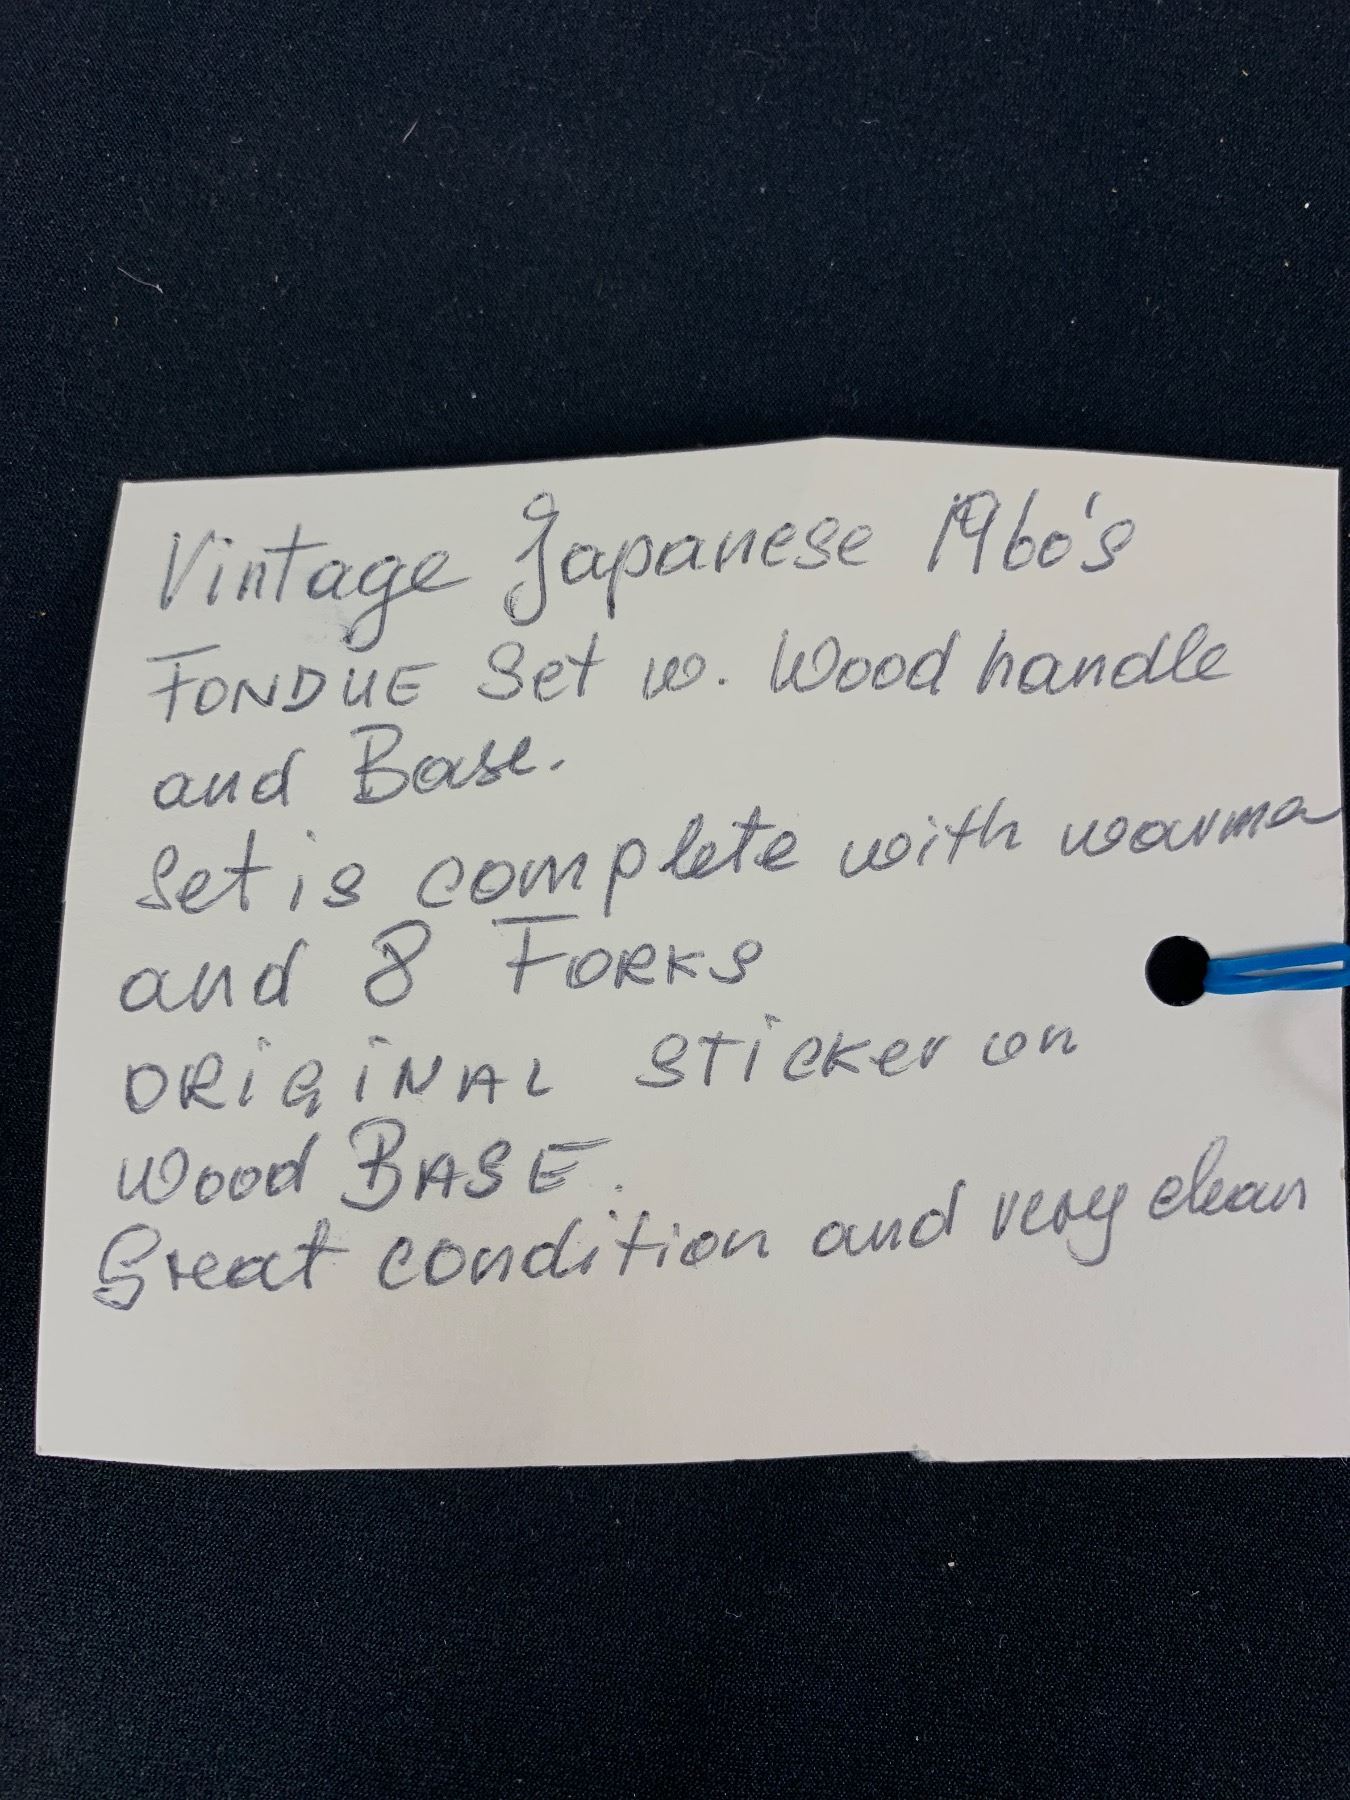 Vintage Japanese 1960's
FONDUE Set w. Wood handle
and Base.
Set is complete with warma
and 8 FORKS
ORiGiNAL STicker on
Wood BASE.
Great condition and very clean